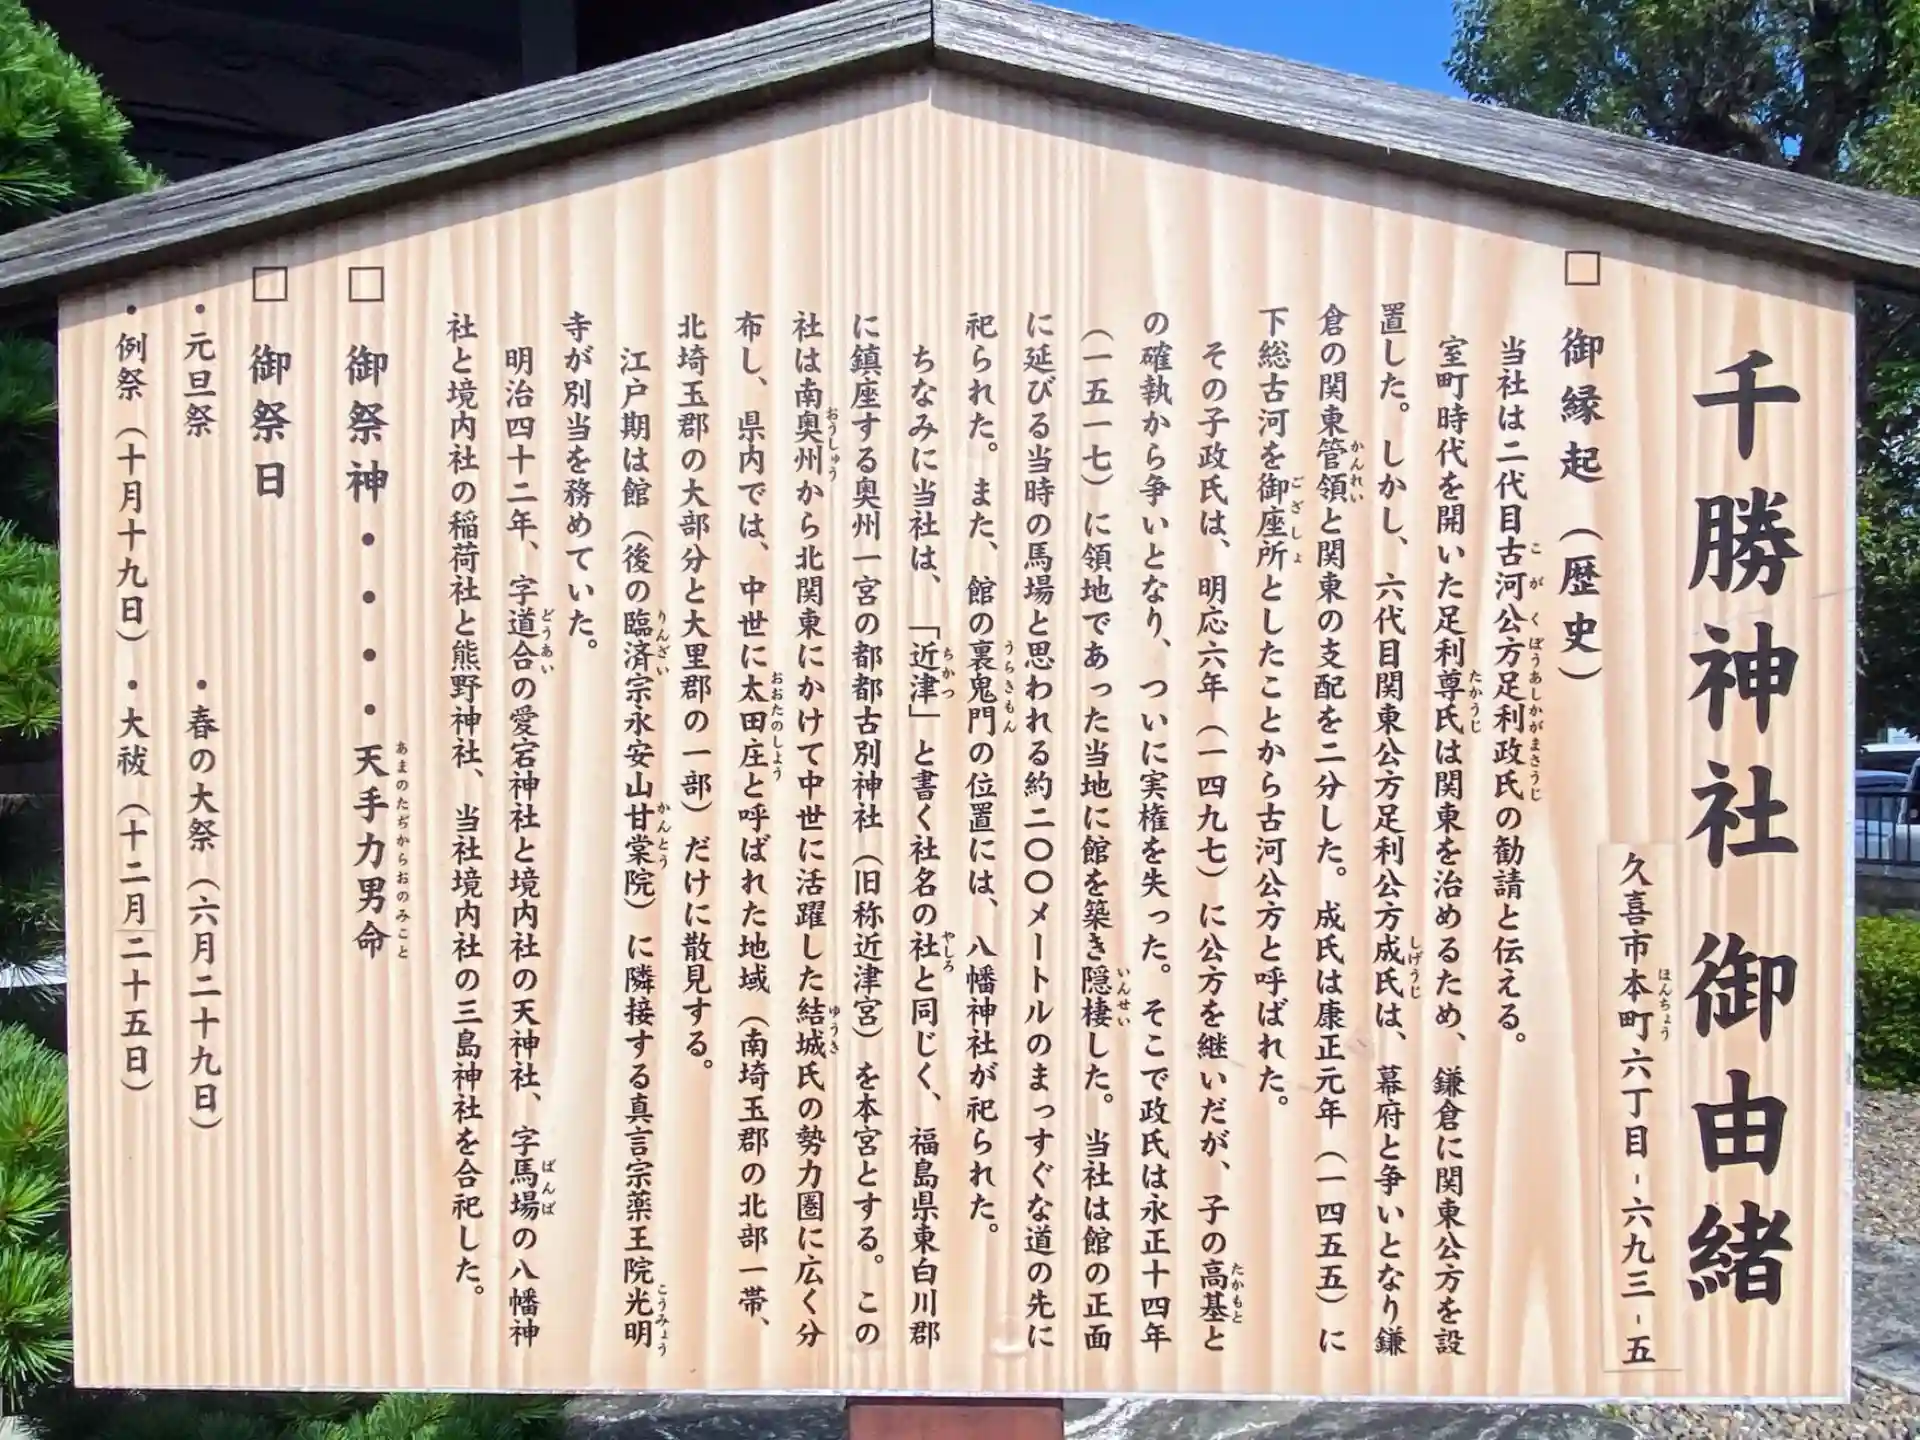 千勝神社 御由緒
久喜市本町六丁目-六九三-五
□ 御縁起（歴史）
当社は二代目古河公方足利政氏の勧請と伝える。
室町時代を開いた足利尊氏は関東を治めるため、鎌倉に関東公方を設
置した。しかし、六代目関東公方足利公方成氏は、幕府と争いとなり鎌
倉の関東管領と関東の支配を二分した。成氏は康正元年（一四五五）に
下総古河を御座所としたことから古河公方と呼ばれた。
その子政氏は、明応六年（一四九七）に公方を継いだが、子の高基と
の確執から争いとなり、ついに実権を失った。そこで政氏は永正十四年
（一五一七）に領地であった当地に館を築き隠棲した。当社は館の正面
に延びる当時の馬場と思われる約二〇〇メートルのまっすぐな道の先に
祀られた。また、館の裏鬼門の位置には、八幡神社が祀られた。
ちなみに当社は、「近津」と書く社名の社と同じく、福島県東白川郡
に鎮座する奥州一宮の都都古別神社（旧称近津宮）を本宮とする。この
社は南奥州から北関東にかけて中世に活躍した結城氏の勢力圏に広く分
布し、県内では、中世に太田庄と呼ばれた地域（南埼玉郡の北部一帯、
北埼玉郡の大部分と大里郡の一部）だけに散見する。
江戸期は館（後の臨済宗永安山甘棠院）に隣接する真言宗薬王院光明
寺が別当を務めていた。
明治四十二年、字道合の愛宕神社と境内社の天神社、字馬場の八幡神
社と境内社の稲荷社と熊野神社、当社境内社の三島神社を合祀した。
□ 御祭神・・・・天手力男命
□ 御祭日
・元旦祭 ・春の大祭（六月二十九日）
・例祭（十月十九日）・大祓（十二月二十五日）